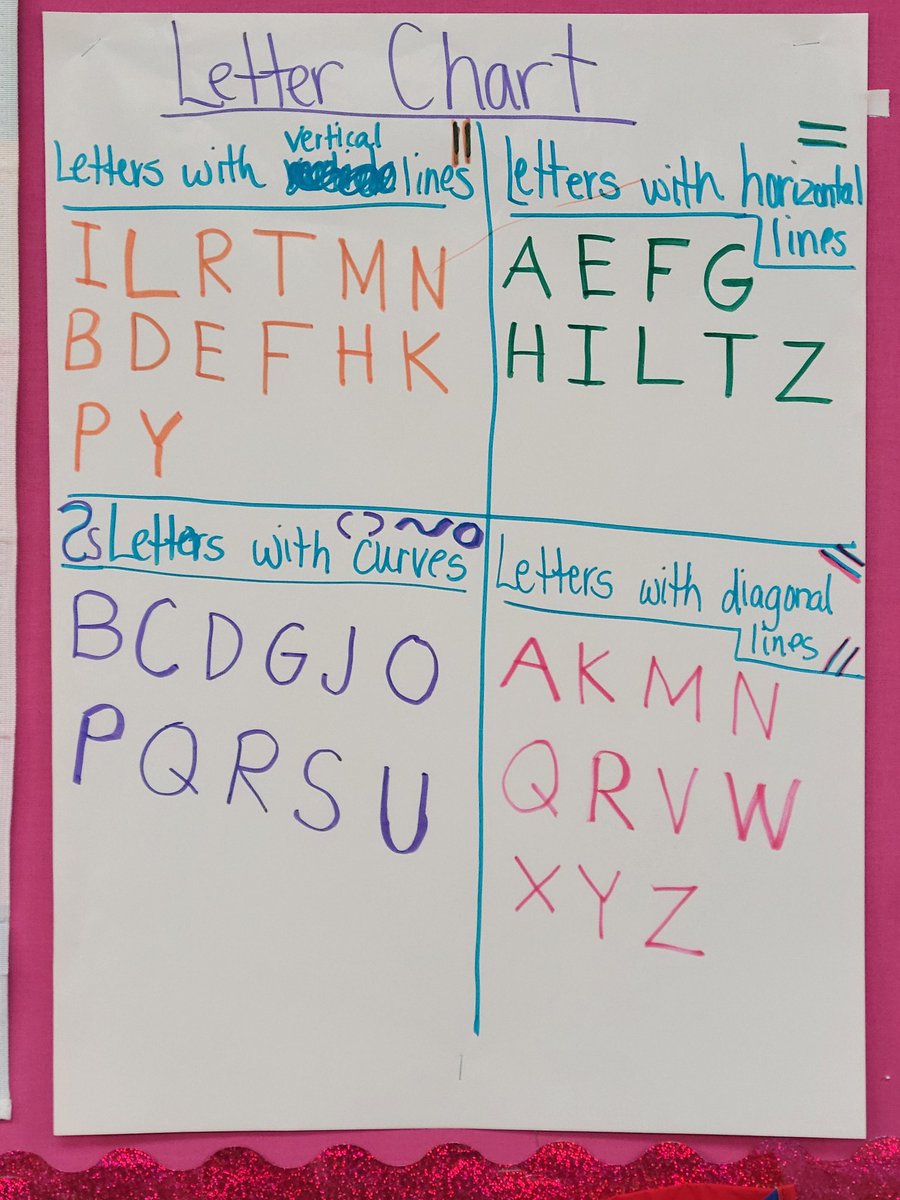 Letter Chart
Letters with vertical lines
I L R T M N
B D E F H K
P Y
Letters with horizontal
lines
A E F G
H I L T Z
Letters with curves
B C D G J O
P Q R S U
Letters with diagonal
lines
A K M N
Q R V W
X Y Z